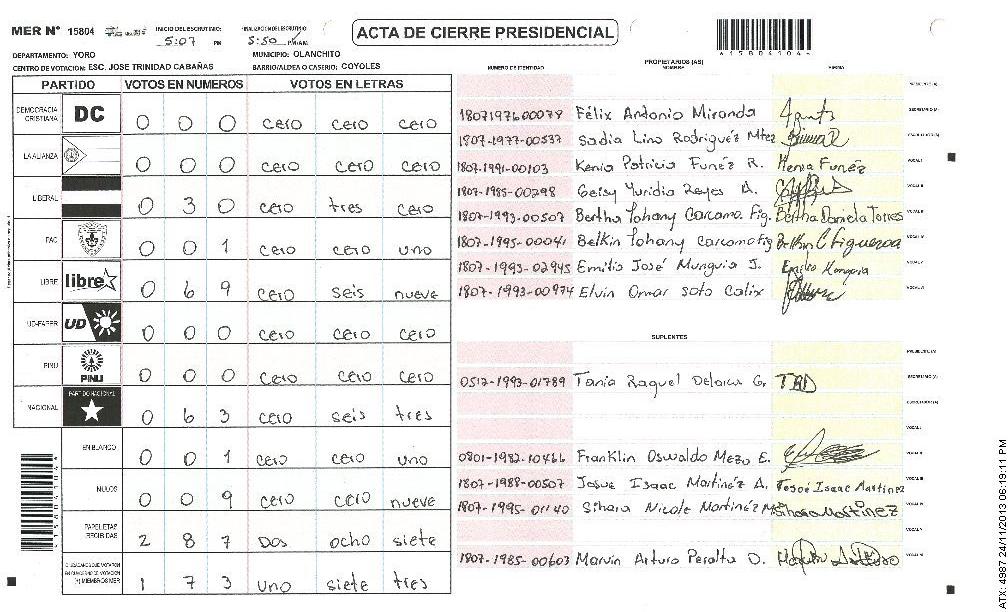 MER Nº 15804 INICIO DEL ESCRUTINIO: 5:07 PM FINALIZACION DEL ESCRUTINIO 5:50 PM/AM. ACTA DE CIERRE PRESIDENCIAL
DEPARTAMENTO: YORO MUNICIPIO: OLANCHITO
CENTRO DE VOTACION: ESC. JOSE TRINIDAD CABAÑAS BARRIO/ALDEA O CASERIO: COYOLES
PARTIDO VOTOS EN NUMEROS VOTOS EN LETRAS
DEMOCRACIA CRISTIANA DC 0 0 0 cero cero cero
LA ALIANZA 0 0 0 cero cero cero
LIBERAL 0 3 0 cero tres cero
PAC 0 0 1 cero cero uno
LIBRE libre 0 6 9 cero seis nueve
UD-FAPER UD 0 0 0 cero cero cero
PINU PINU 0 0 0 cero cero cero
NACIONAL PARTIDO NACIONAL 0 6 3 cero seis tres
EN BLANCO 0 0 1 cero cero uno
NULOS 0 0 9 cero cero nueve
PAPELETAS RECIBIDAS 2 8 7 Dos ocho siete
CIUDADANOS QUE VOTARON EN CUADERNO DE VOTACION (+) MIEMBROS MER 1 7 3 uno siete tres
PROPIETARIOS (AS)
NUMERO DE IDENTIDAD NOMBRE FIRMA
1807197600079 Félix Antonio Miranda
1807-1977-00537 Sadia Lino Rodriguéz Mtez
1807-1991-00103 Kenia Patricia Funéz R. Kenia Funéz
1807-1985-00298 Geisy Yuridia Reyes A.
1807-1993-00507 Bertha Yohany Carcamo. Fig. Bertha Daniela Torres
1807-1995-00041 Belkin Yohany Carcamo Fig Belkin C Figueroa
1807-1993-02945 Emilio José Munguia J. Emilio Munguia
1807-1993-00974 Elvin Omar Soto Calix
SUPLENTES
0512-1993-01789 Tania Raquel G.
0801-1982-10466 Franklin Oswaldo Mezo E.
1807-1988-00507 Josue Isaac Martinéz A. Josué Isaac Martinez
1807-1995-01140 Sihara Nicole Martinéz M Sihara Martinez
1807-1985-00603 Marvin Arturo Peralta O.
ATX: 4987 24/11/2013 06:19:11 PM